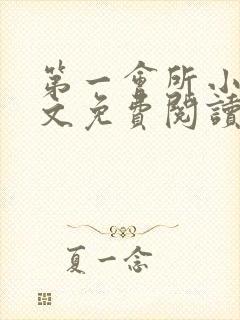 第一會所小
文免費閱讀
夏一念